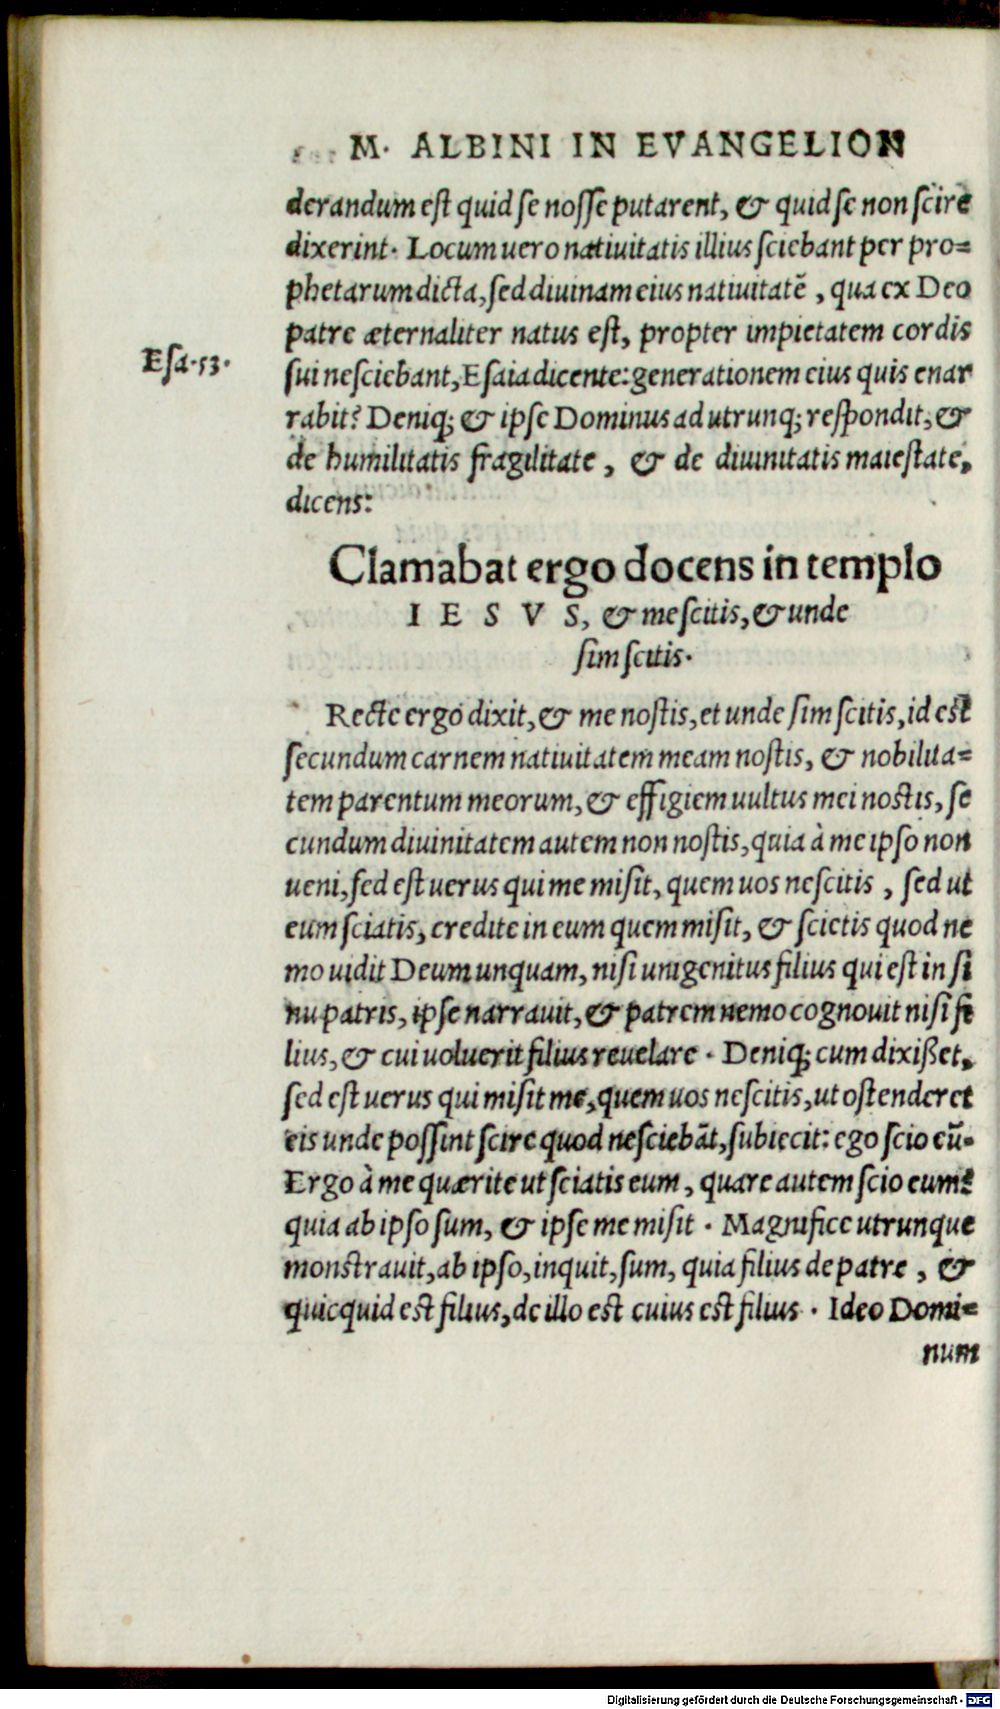 M. ALBINI IN EVANGELION
derandum est quid se nosse putarent, & quid se non scire
dixerint. Locum uero natiuitatis illius sciebant per pro=
phetarum dicta, sed diuinam eius natiuitatē, qua ex Deo
patre æternaliter natus est, propter impietatem cordis
Esa.53.
sui nesciebant, Esaia dicente: generationem eius quis enar
rabit? Deniq; & ipse Dominus ad utrunq; respondit, &
de humilitatis fragilitate, & de diuinitatis maiestate,
dicens:
Clamabat ergo docens in templo
IESVS, & me scitis, & unde
sim scitis.
Recte ergo dixit, & me nostis, et unde sim scitis, id est
secundum carnem natiuitatem meam nostis, & nobilita=
tem parentum meorum, & effigiem uultus mei nostis, se
cundum diuinitatem autem non nostis, quia à me ipso non
ueni, sed est uerus qui me misit, quem uos nescitis, sed ut
eum sciatis, credite in eum quem misit, & scietis quod ne
mo uidit Deum unquam, nisi unigenitus filius qui est in si
nu patris, ipse narrauit, & patrem nemo cognouit nisi fi
lius, & cui uoluerit filius reuelare. Deniq; cum dixißet,
sed est uerus qui misit me, quem uos nescitis, ut ostenderet
eis unde possint scire quod nesciebāt, subiecit: ego scio eū.
Ergo à me quærite ut sciatis eum, quare autem scio eum?
quia ab ipso sum, & ipse me misit. Magnifice utrunque
monstrauit, ab ipso, inquit, sum, quia filius de patre, &
quicquid est filius, de illo est cuius est filius. Ideo Domi=
num
Digitalisierung gefördert durch die Deutsche Forschungsgemeinschaft - DFG